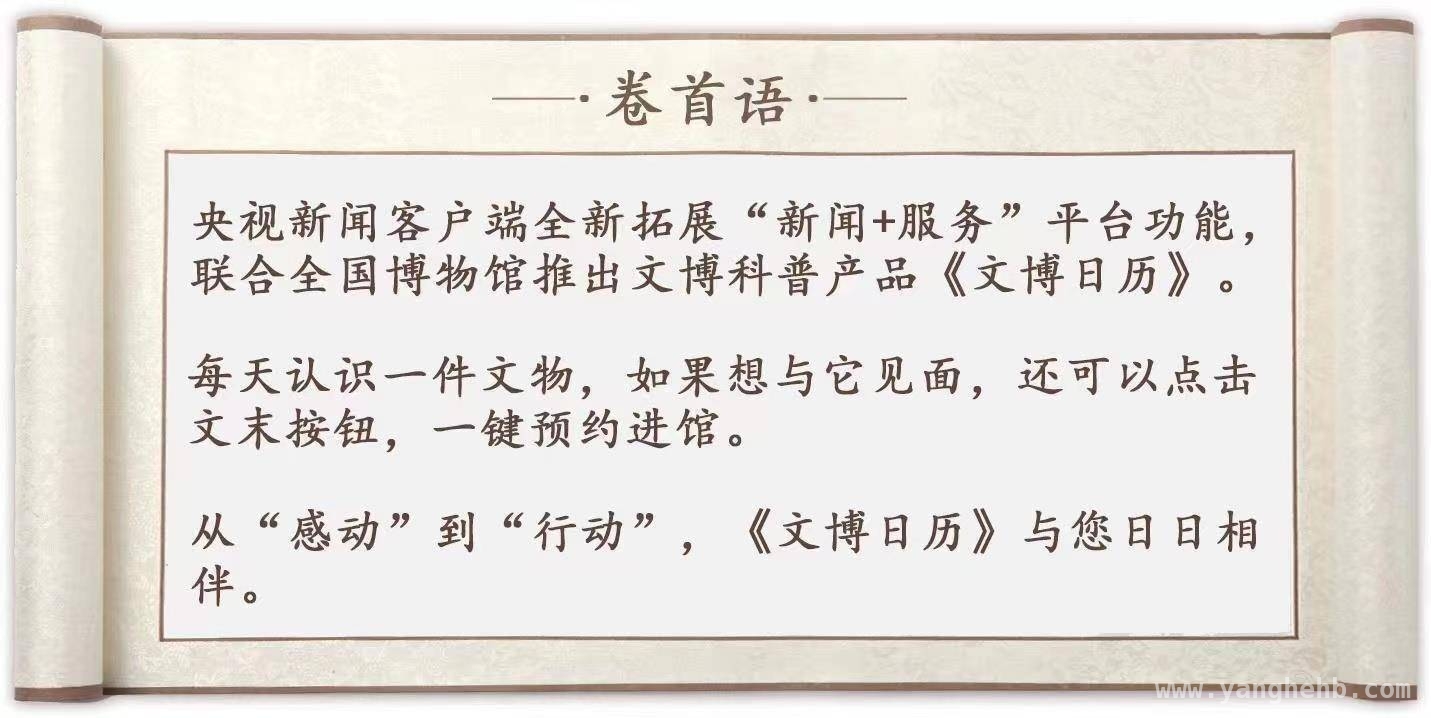 卷首语
央视新闻客户端全新拓展“新闻+服务”平台功能，
联合全国博物馆推出文博科普产品《文博日历》。
每天认识一件文物，如果想与它见面，还可以点击
文末按钮，一键预约进馆。
从“感动”到“行动”，《文博日历》与您日日相
伴。
www.yanghehb.com